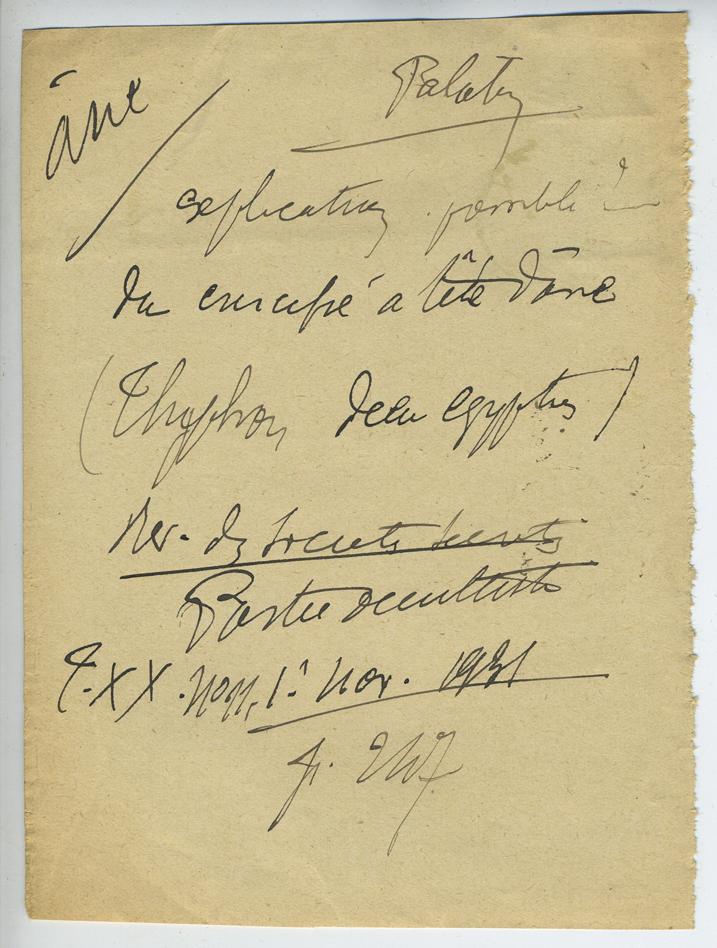 âne
Palatin
explication possible
du crucifié a tête d'âne
(Thyphon dieu egyptien)
Rev. des Societes Secretes
Partie occultiste
T. XX. No 11, 1er Nov. 1931
p.